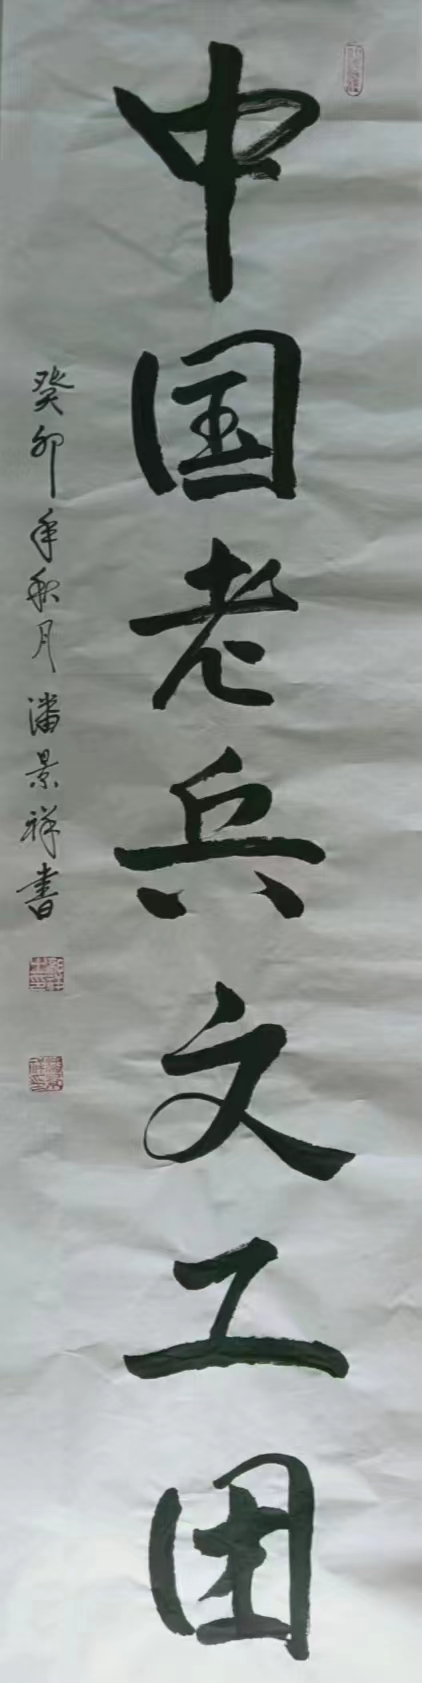 中国老兵文工团
癸卯年秋月潘景祥书